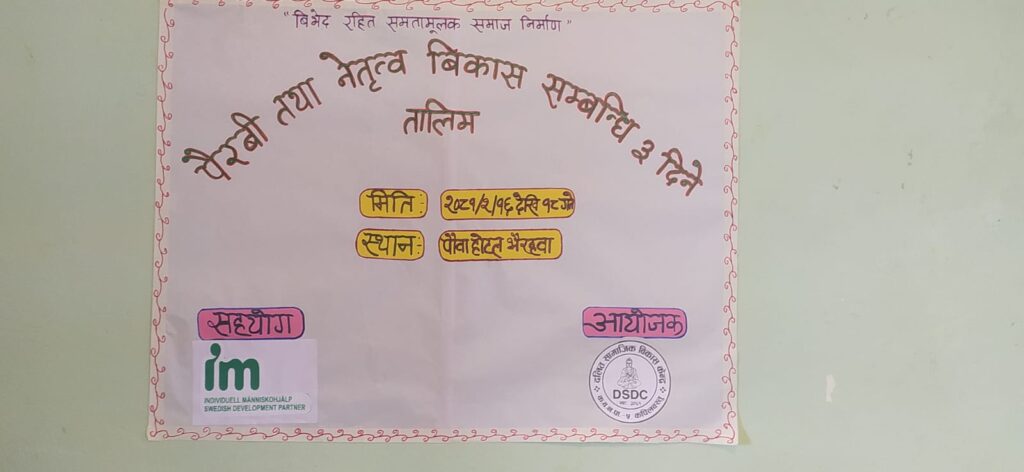 "बिभेद रहित समतामूलक समाज निर्माण"
पैरबी तथा नेतृत्व बिकास सम्बन्धि ३ दिने
तालिम
मिति: २०८१/२/१६ देखि १८ गते
स्थान: पौवा होटल भैरहवा
सहयोग
im
INDIVIDUELL MÄNNISKOHJÄLP
SWEDISH DEVELOPMENT PARTNER
आयोजक
दलित सामाजिक बिकास केन्द्र
DSDC
क.व.न.पा.-५ कपिलवस्तु